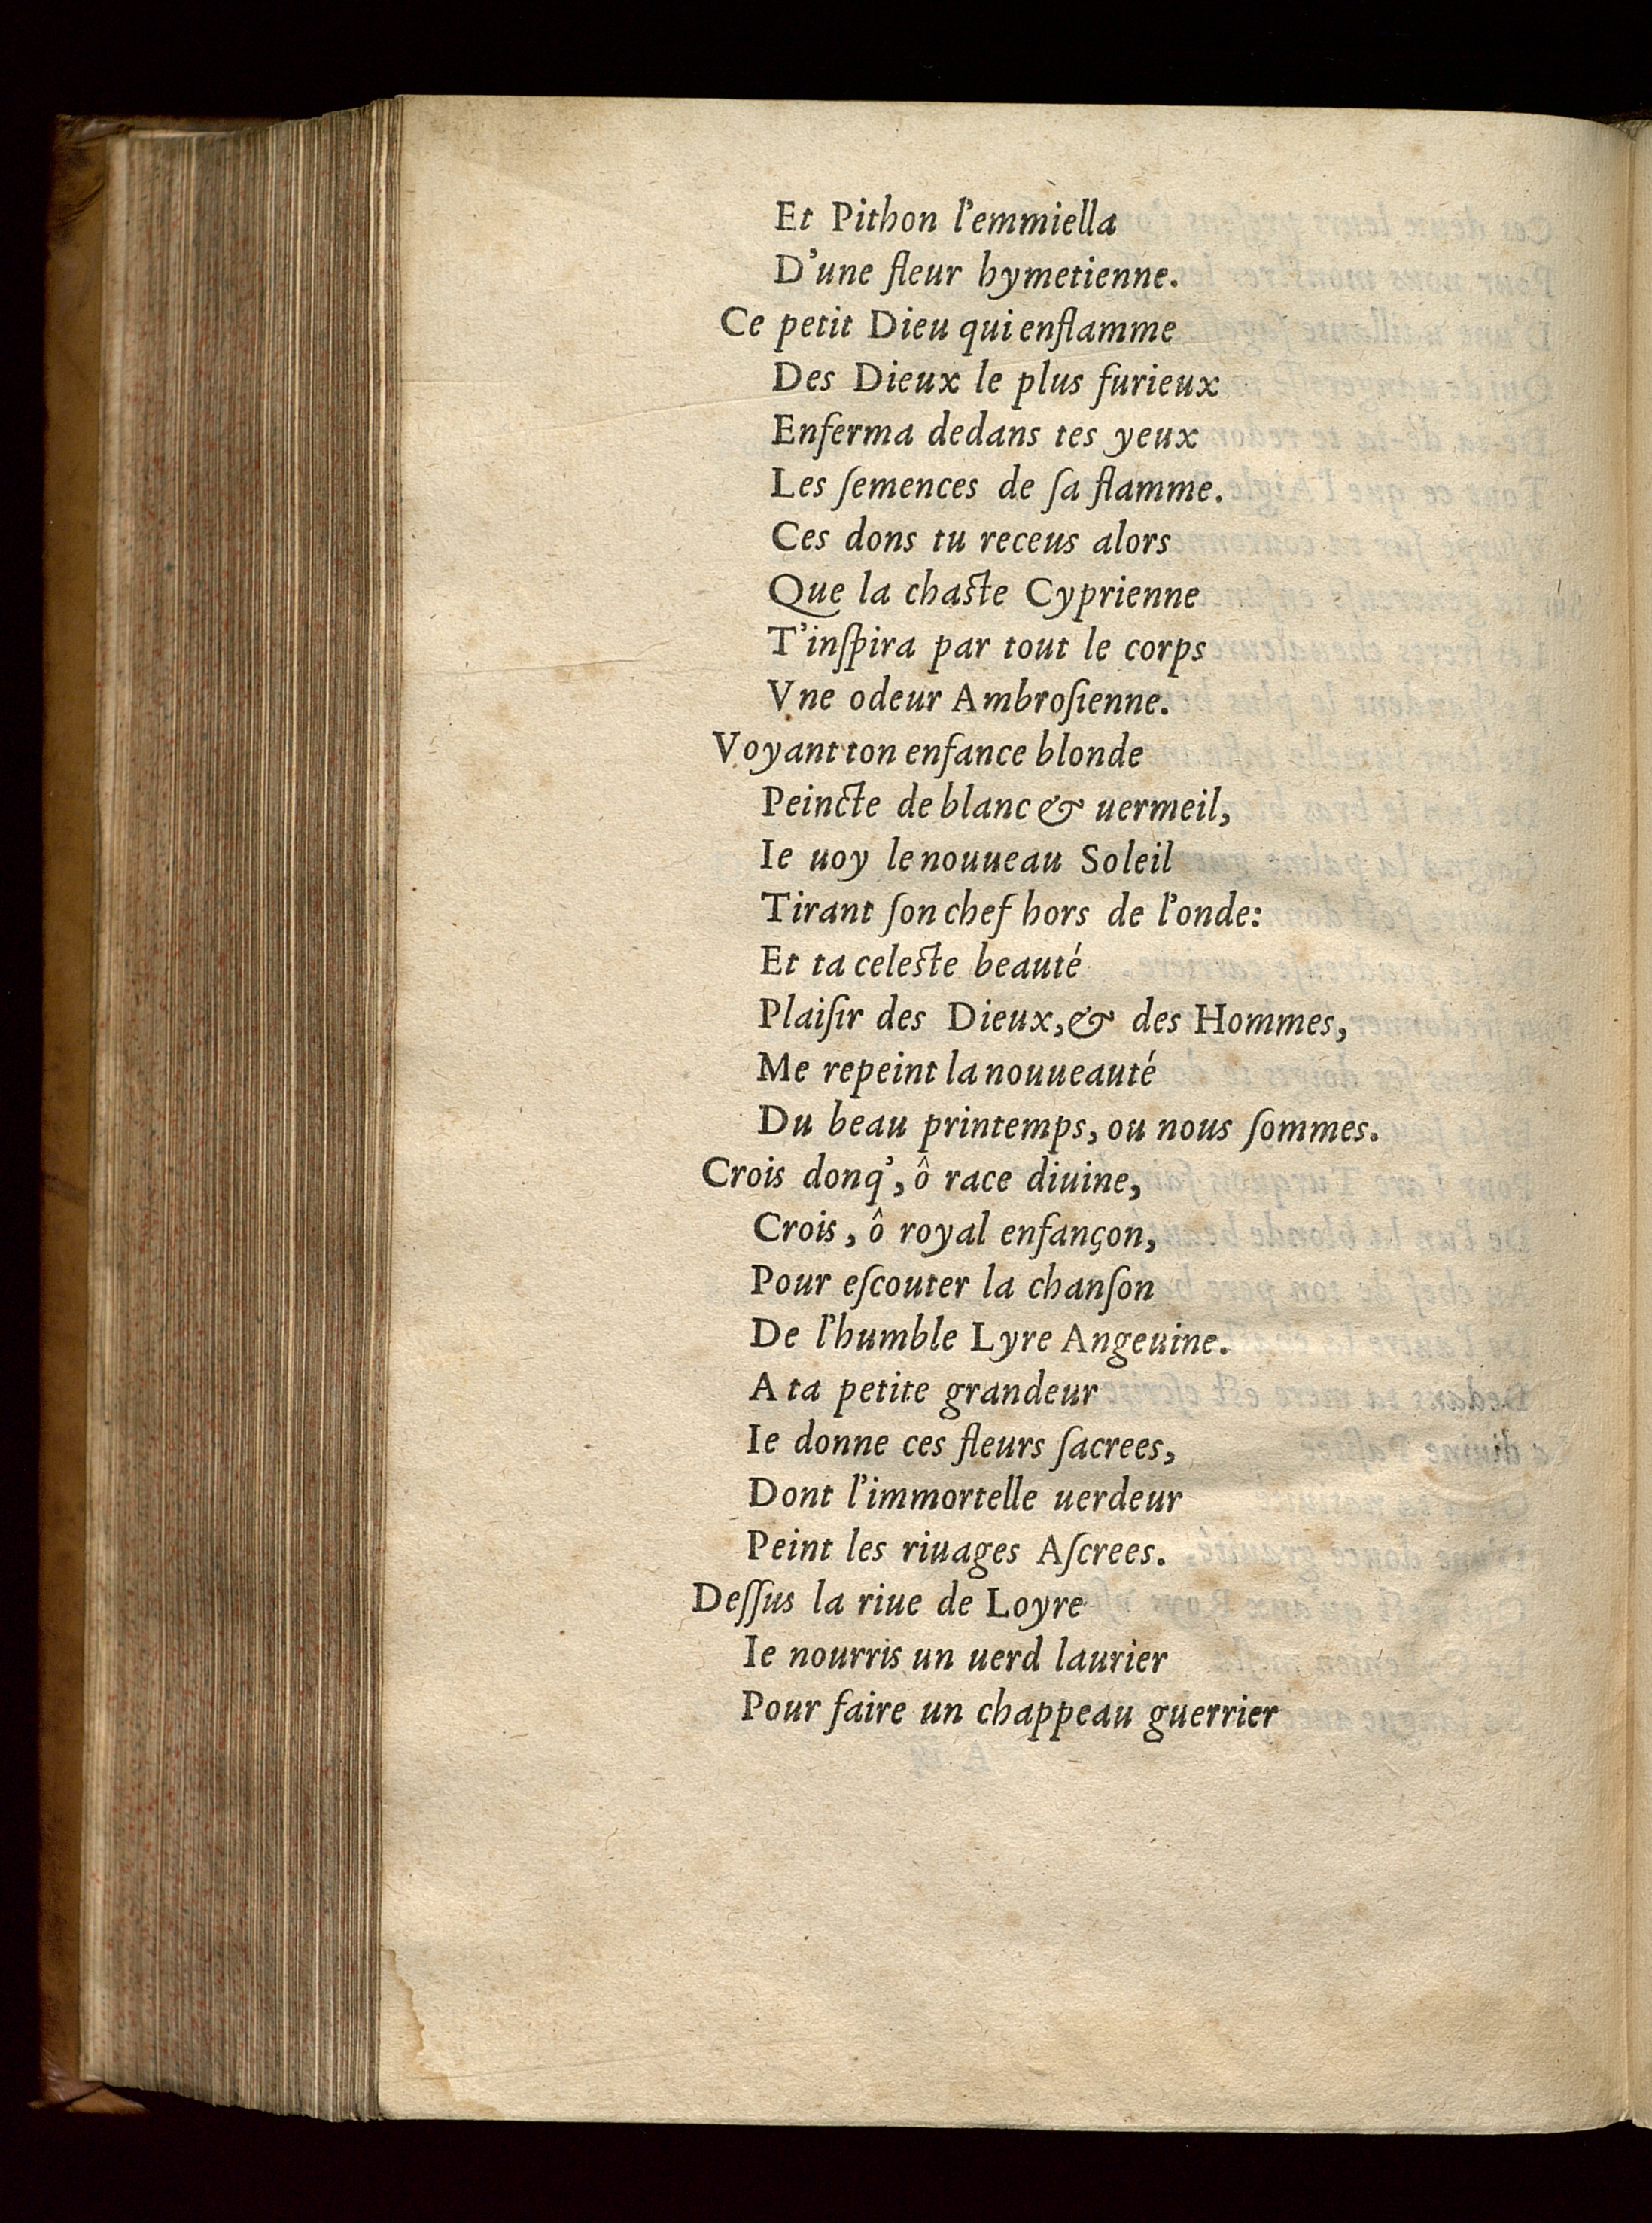 Et Pithon l'emmiella
D'une fleur hymetienne.
Ce petit Dieu qui enflamme
Des Dieux le plus furieux
Enferma dedans tes yeux
Les ſemences de ſa flamme.
Ces dons tu receus alors
Que la chaſte Cyprienne
T'inſpira par tout le corps
Vne odeur Ambroſienne.
Voyant ton enfance blonde
Peincte de blanc & uermeil,
Ie uoy le nouueau Soleil
Tirant ſon chef hors de l'onde:
Et ta celeſte beauté
Plaiſir des Dieux, & des Hommes,
Me repeint la nouueauté
Du beau printemps, ou nous ſommes.
Crois donq', ô race diuine,
Crois, ô royal enfançon,
Pour eſcouter la chanſon
De l'humble Lyre Angeuine.
A ta petite grandeur
Ie donne ces fleurs ſacrees,
Dont l'immortelle uerdeur
Peint les riuages Aſcrees.
Deſſus la riue de Loyre
Ie nourris un uerd laurier
Pour faire un chappeau guerrier